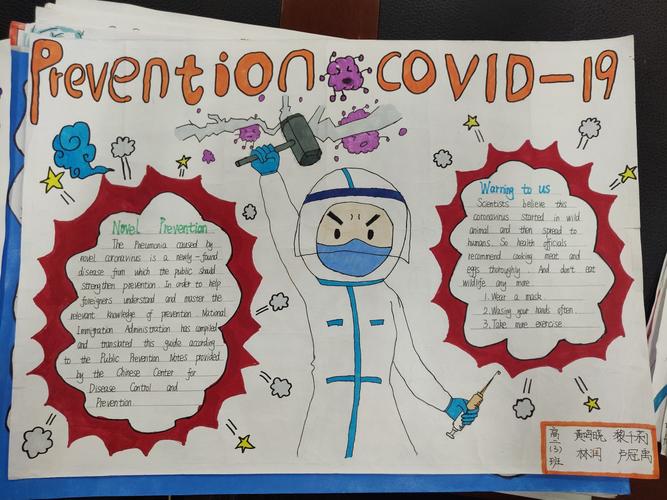 Prevention COVID-19
Novel Prevention
The Pneumonia caused by
novel coronavirus is a newly-found
disease from which the public should
strengthen prevention. In order to help
foreigners understand and master the
relevant knowledge of prevention National
Immigration Administration has compiled
and translated this guide according
to the Public Prevention Notes provided
by the Chinese Center for
Disease Control and
Prevention
Warning to us
Scientists believe this
coronavirus started in wild
animal and then spread to
humans. So health officials
recommend cooking meat and
eggs thoroughly. And don't eat
wildlife any more
1. Wear a mask
2. Wasing your hands often.
3. Take more exercise
高二(3)班
黎千莉
林润 卢冠禹